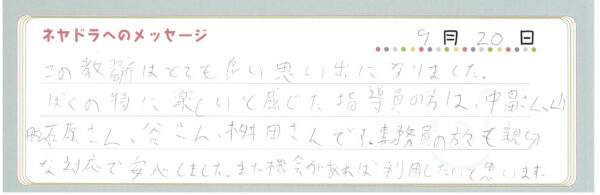 ネヤドラへのメッセージ
9月20日
この教習はとても良い思い出になりました。
ぼくの特に楽しいと感じた指導員の方は、中畠さん、山
石原さん、谷さん、桝田さんです。事務員の方々も親切
な対応で安心しました。また機会があれば利用したいと思います。